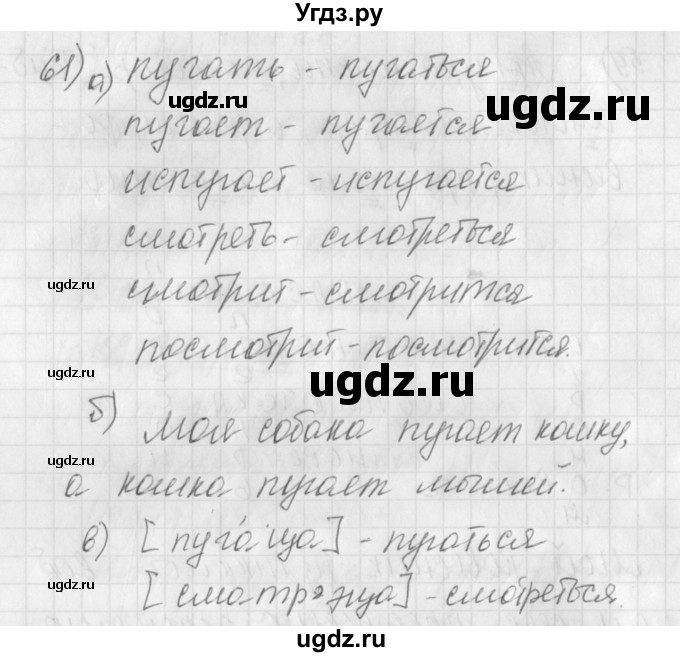 Угдз.ру
61) а) пугать - пугаться
ugdz.ru ugdz.ru
пугает - пугается
испугает - испугается
смотреть - смотреться
ugdz.ru смотрит - смотрится
посмотрит - посмотрится.
ugdz.ru ugdz.ru
б) Моя собака пугает кошку,
ugdz.ru
а кошка пугает мышей.
в) [пуга́ца] - пугаться
ugdz.ru - смотреться.
ugdz.ru